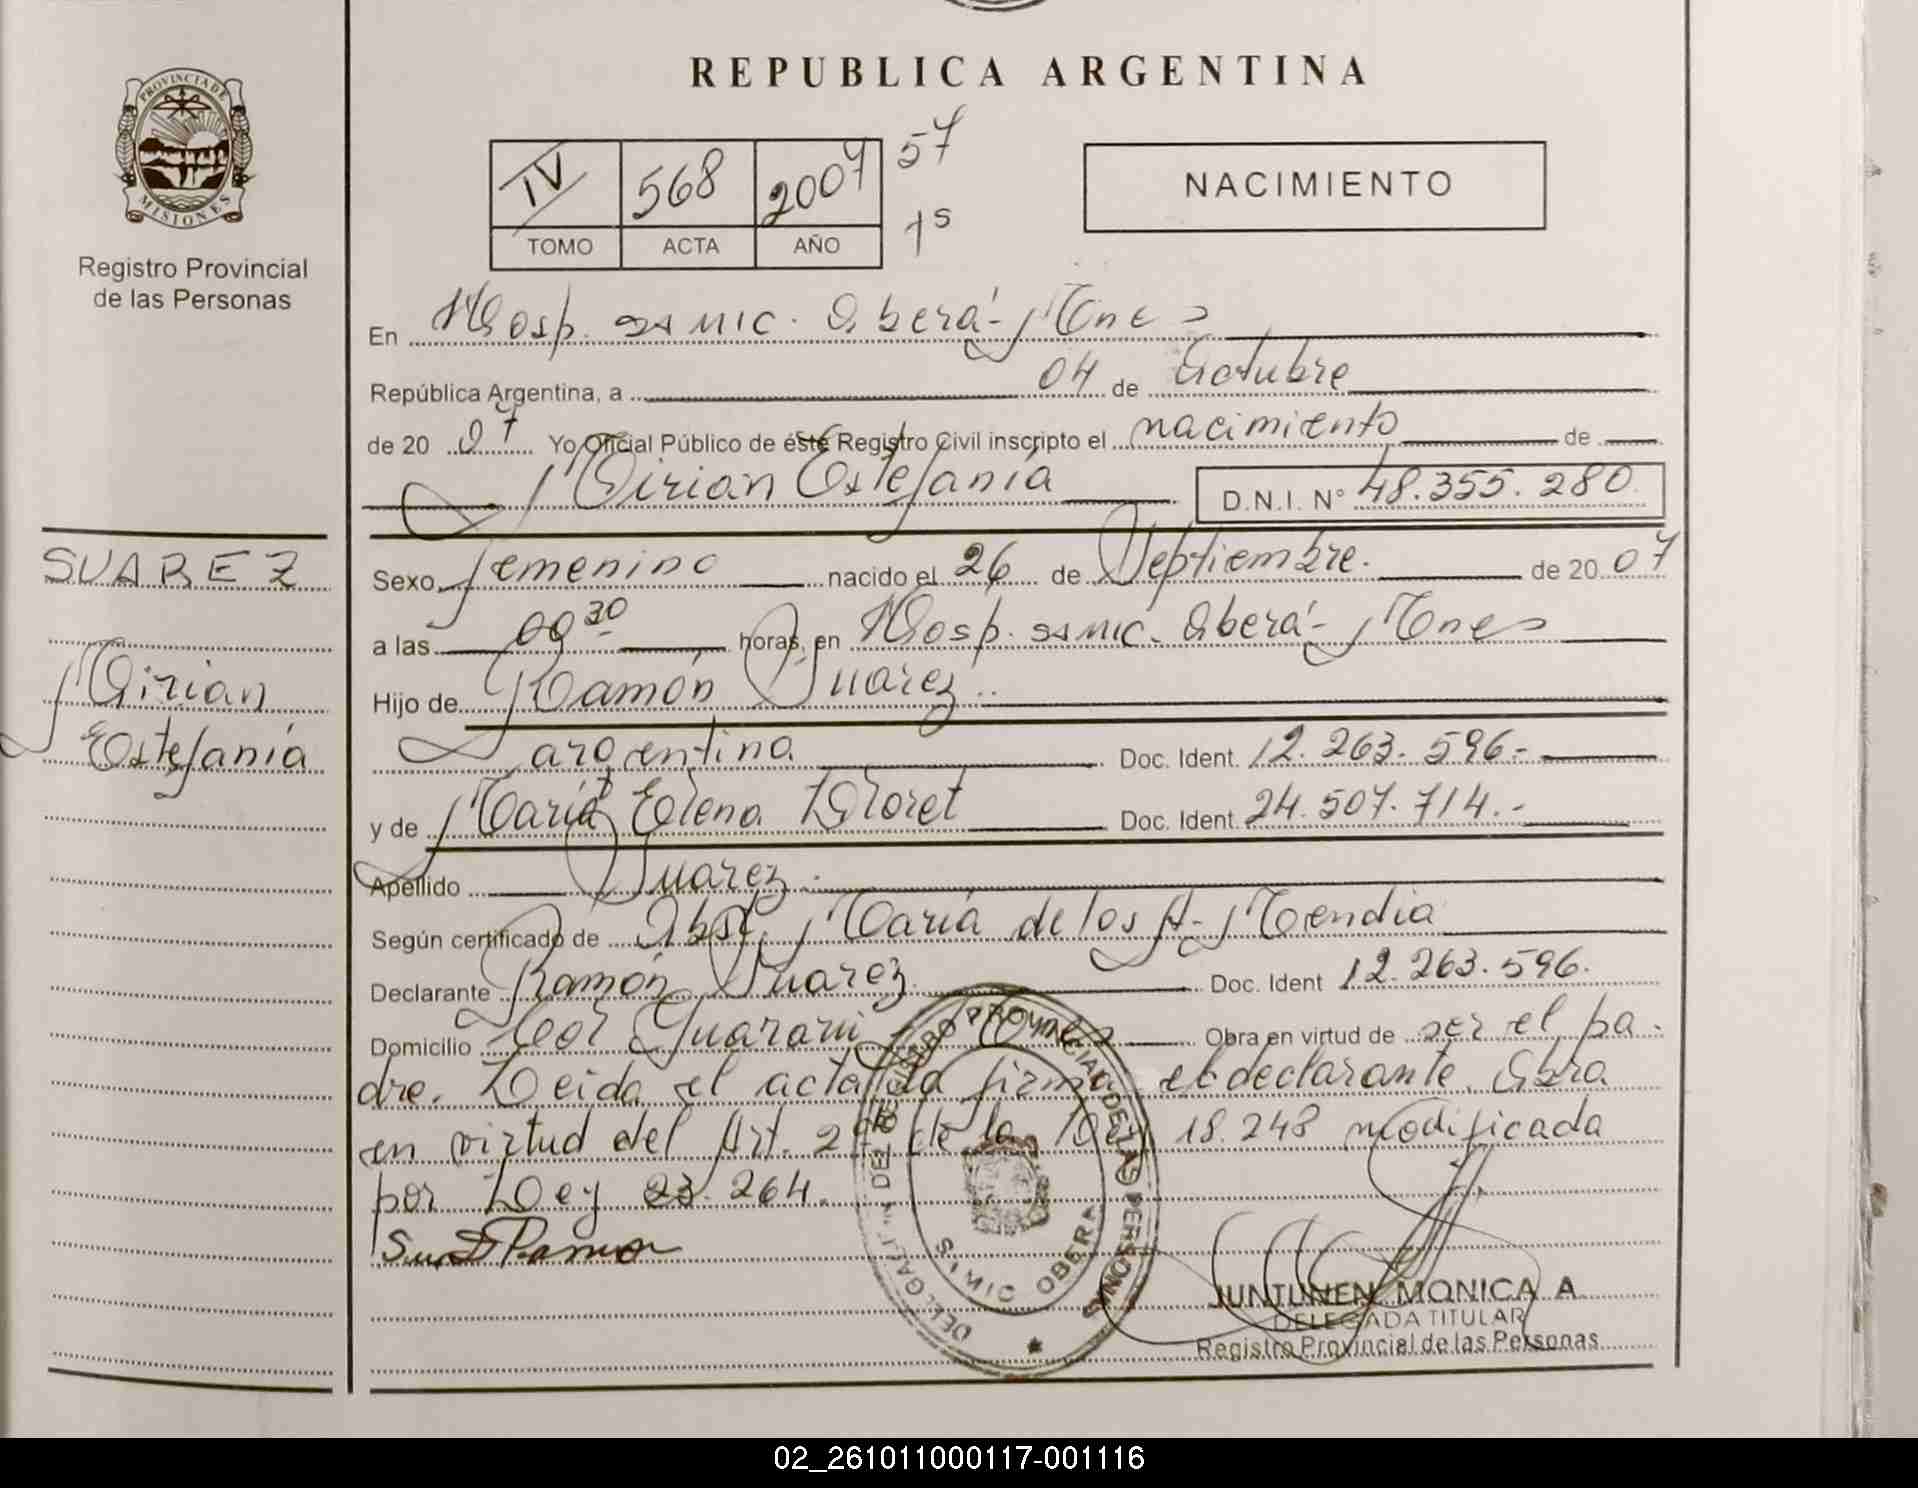 REPUBLICA ARGENTINA
PROVINCIA DE MISIONES
Registro Provincial
de las Personas
IV 568 2007 57
TOMO ACTA AÑO 1s
NACIMIENTO
En Hosp. SAMIC. Oberá - Mnes
República Argentina, a 04 de Octubre
de 20 07 Yo Oficial Público de éste Registro Civil inscripto el nacimiento de
Mirian Estefanía D.N.I. N° 48.355.280
SUAREZ
Mirian
Estefanía
Sexo femenino nacido el 26 de Septiembre. de 20 07
a las 09 30 horas, en Hosp. SAMIC. Oberá - Mnes
Hijo de Ramón Suarez
argentina Doc. Ident. 12.263.596.-
y de María Elena Lloret Doc. Ident. 24.507.714.-
Apellido Suarez.
Según certificado de Obst. María de los A. Mendia
Declarante Ramón Suarez. Doc. Ident 12.263.596.
Domicilio Col Guaraní - Mnes Obra en virtud de ser el pa-
dre. Leida el acta la firma el declarante. Obra
en virtud del Art. 2° de la Ley 18.248 modificada
por Ley 23.264.
Ramon
DELEGAC. DEL REGISTRO PROVINCIAL DE LAS PERSONAS
SAMIC OBERA
JUNTUNEN MONICA A
DELEGADA TITULAR
Registro Provincial de las Personas
02_261011000117-001116